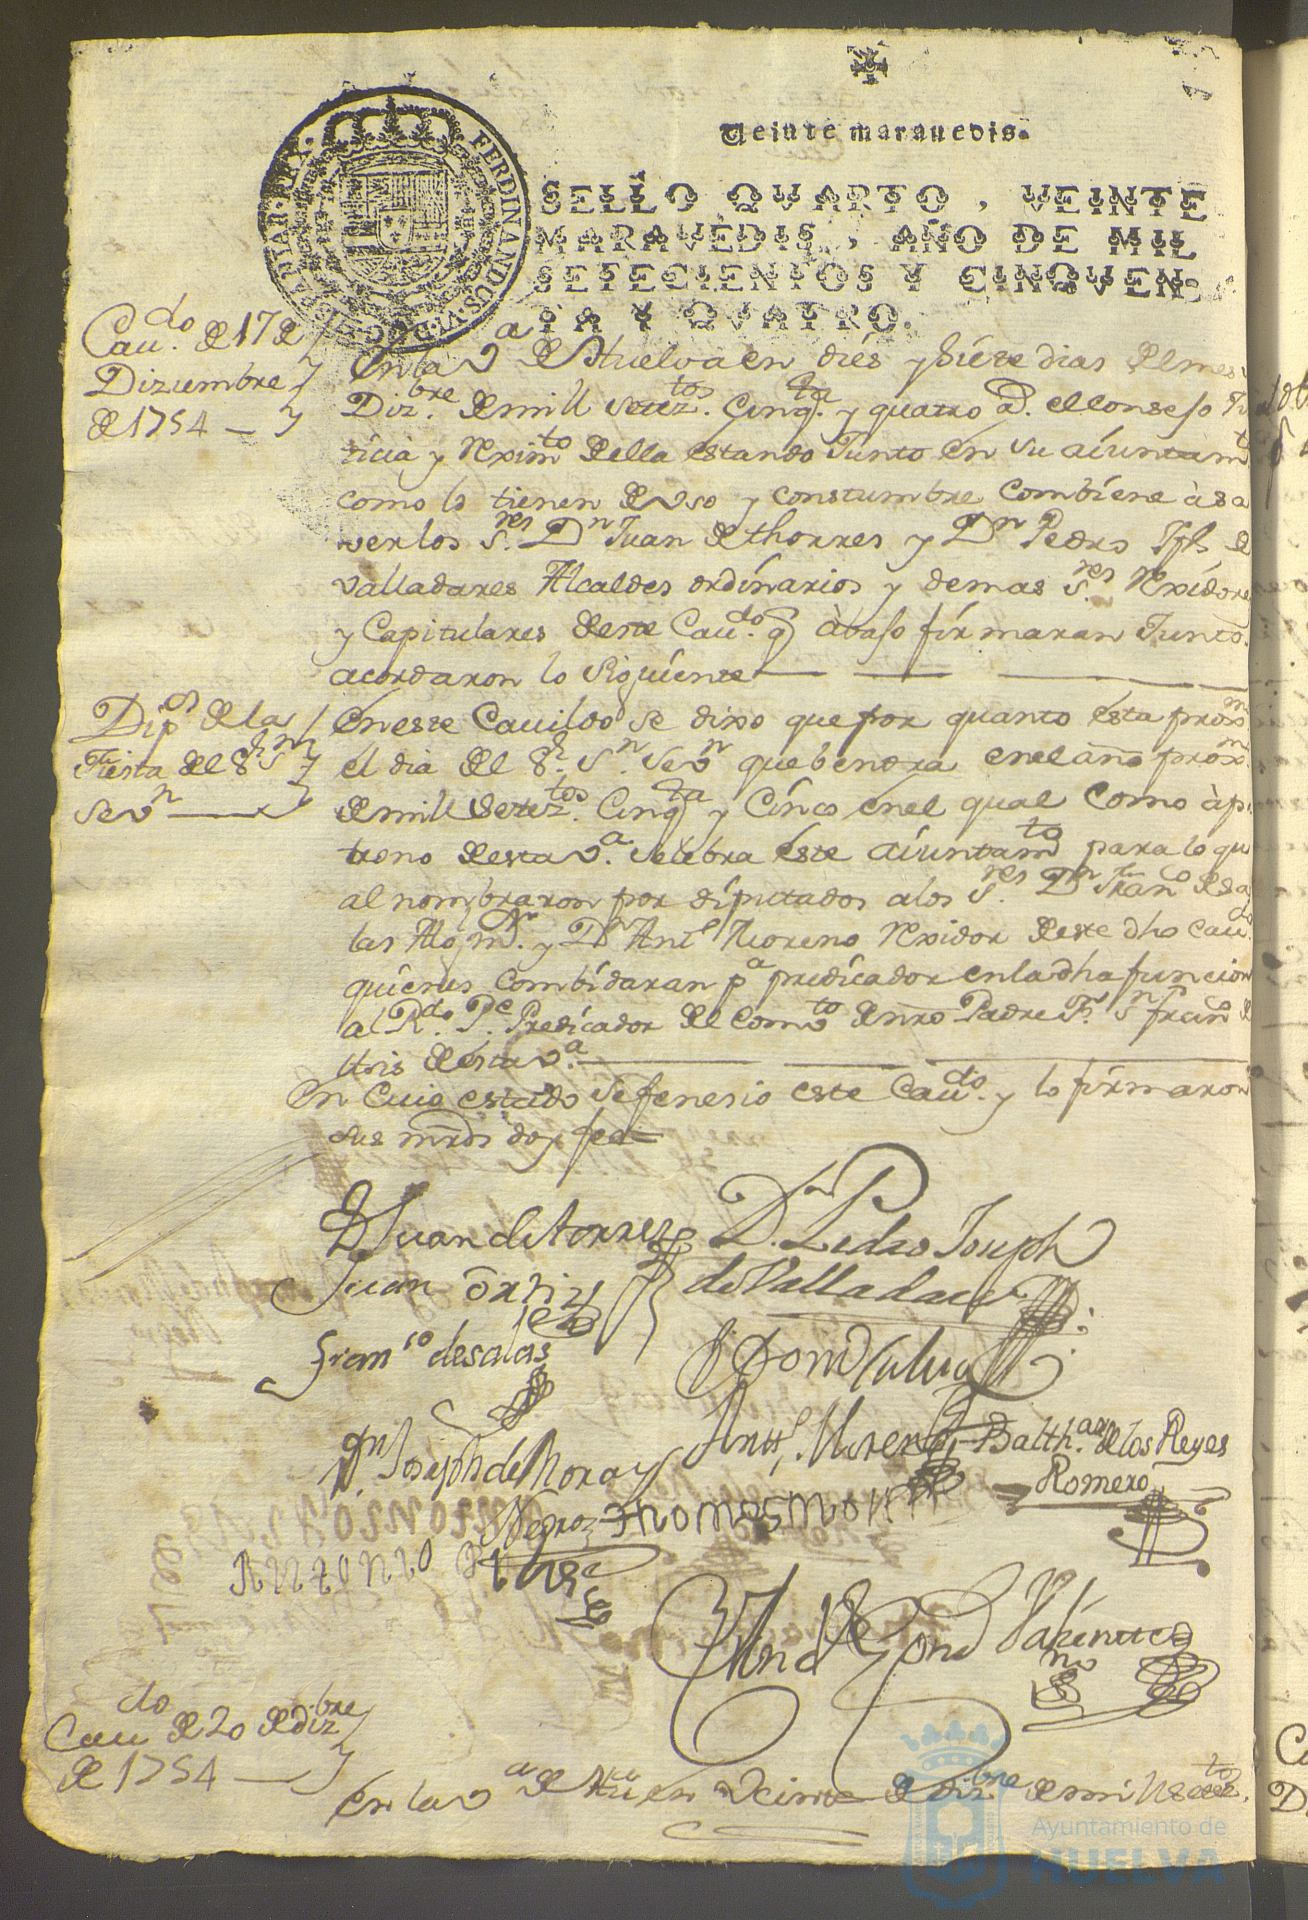 Veinte maravedis.
SELLO QVARTO, VEINTE
MARAVEDIS, AÑO DE MIL
SETECIENTOS Y CINQVEN-
TA Y QVATRO.
FERDINANDUS VI D G HISPANIAR REX
Cau.do de 17 de
Diziembre
de 1754
En la v.a de Huelva en dies y siete dias del mes
Diz.bre de mill setez.tos Cinq.ta y quatro a.s el Consejo Jus
ticia y Reximto della estando Junto en su aiuntam.to
como lo tienen de uso y constumbre combiene à sa
ver los S.res D.n Juan de thorres y D.n Pedro Jph de
valladares Alcaldes ordinarios y demas S.res Rexidores
y Capitulares deste Cau.do q abajo firmaran Juntos
acordaron lo siguiente
Dip.on de la
Fiesta del S.r S.n
Sev.n
En este Cavildo se dixo que por quanto esta proxm
el dia del S.r S.n Sev.n que bendra en el año proxm
de mill setez.tos Cinq.ta y Cinco en el qual como à pa
trono desta v.a selebra este aiuntam.to para lo qu
al nombraron por diputados a los S.res D.n Fran.co de sa
las Alg. m.r y D.n Ant.o Moreno Rexidor deste dho Cau.do
quienes combidaran p.a predicador en la dha funcion
al R.do P.e Predicador del Comb.to de nro Padre S.r S.n Fran.co de
Asis desta v.a
En Cuio estado se fenesio este Cau.do y lo firmaron
sus mrds doy fee
D Juan de torres
D.n Pedro Joseph
de Valladares
Juan Ortiz
Fran.co de salas
D.n Joseph de Mora y
Negro
Antt.o Moreno
Balth.ar de los Reyes
Romero
Thomas
Antonio
Cau.do de 20 de diz.bre
de 1754
En la v.a de Hu.a en veinte de diz.bre de mill setez.tos
Ayuntamiento de
HUELVA